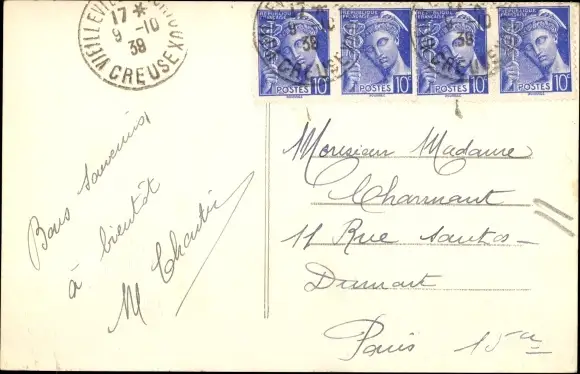 17 *
9 - 10
39
CREUSE
RÉPUBLIQUE FRANÇAISE
POSTES 10c
RÉPUBLIQUE FRANÇAISE
POSTES 10c
RÉPUBLIQUE FRANÇAISE
POSTES 10c
RÉPUBLIQUE FRANÇAISE
POSTES 10c
Bons souvenirs,
à bientôt
M
Monsieur Madame
Charmant
11 Rue Santos-
Dumont
Paris 15e